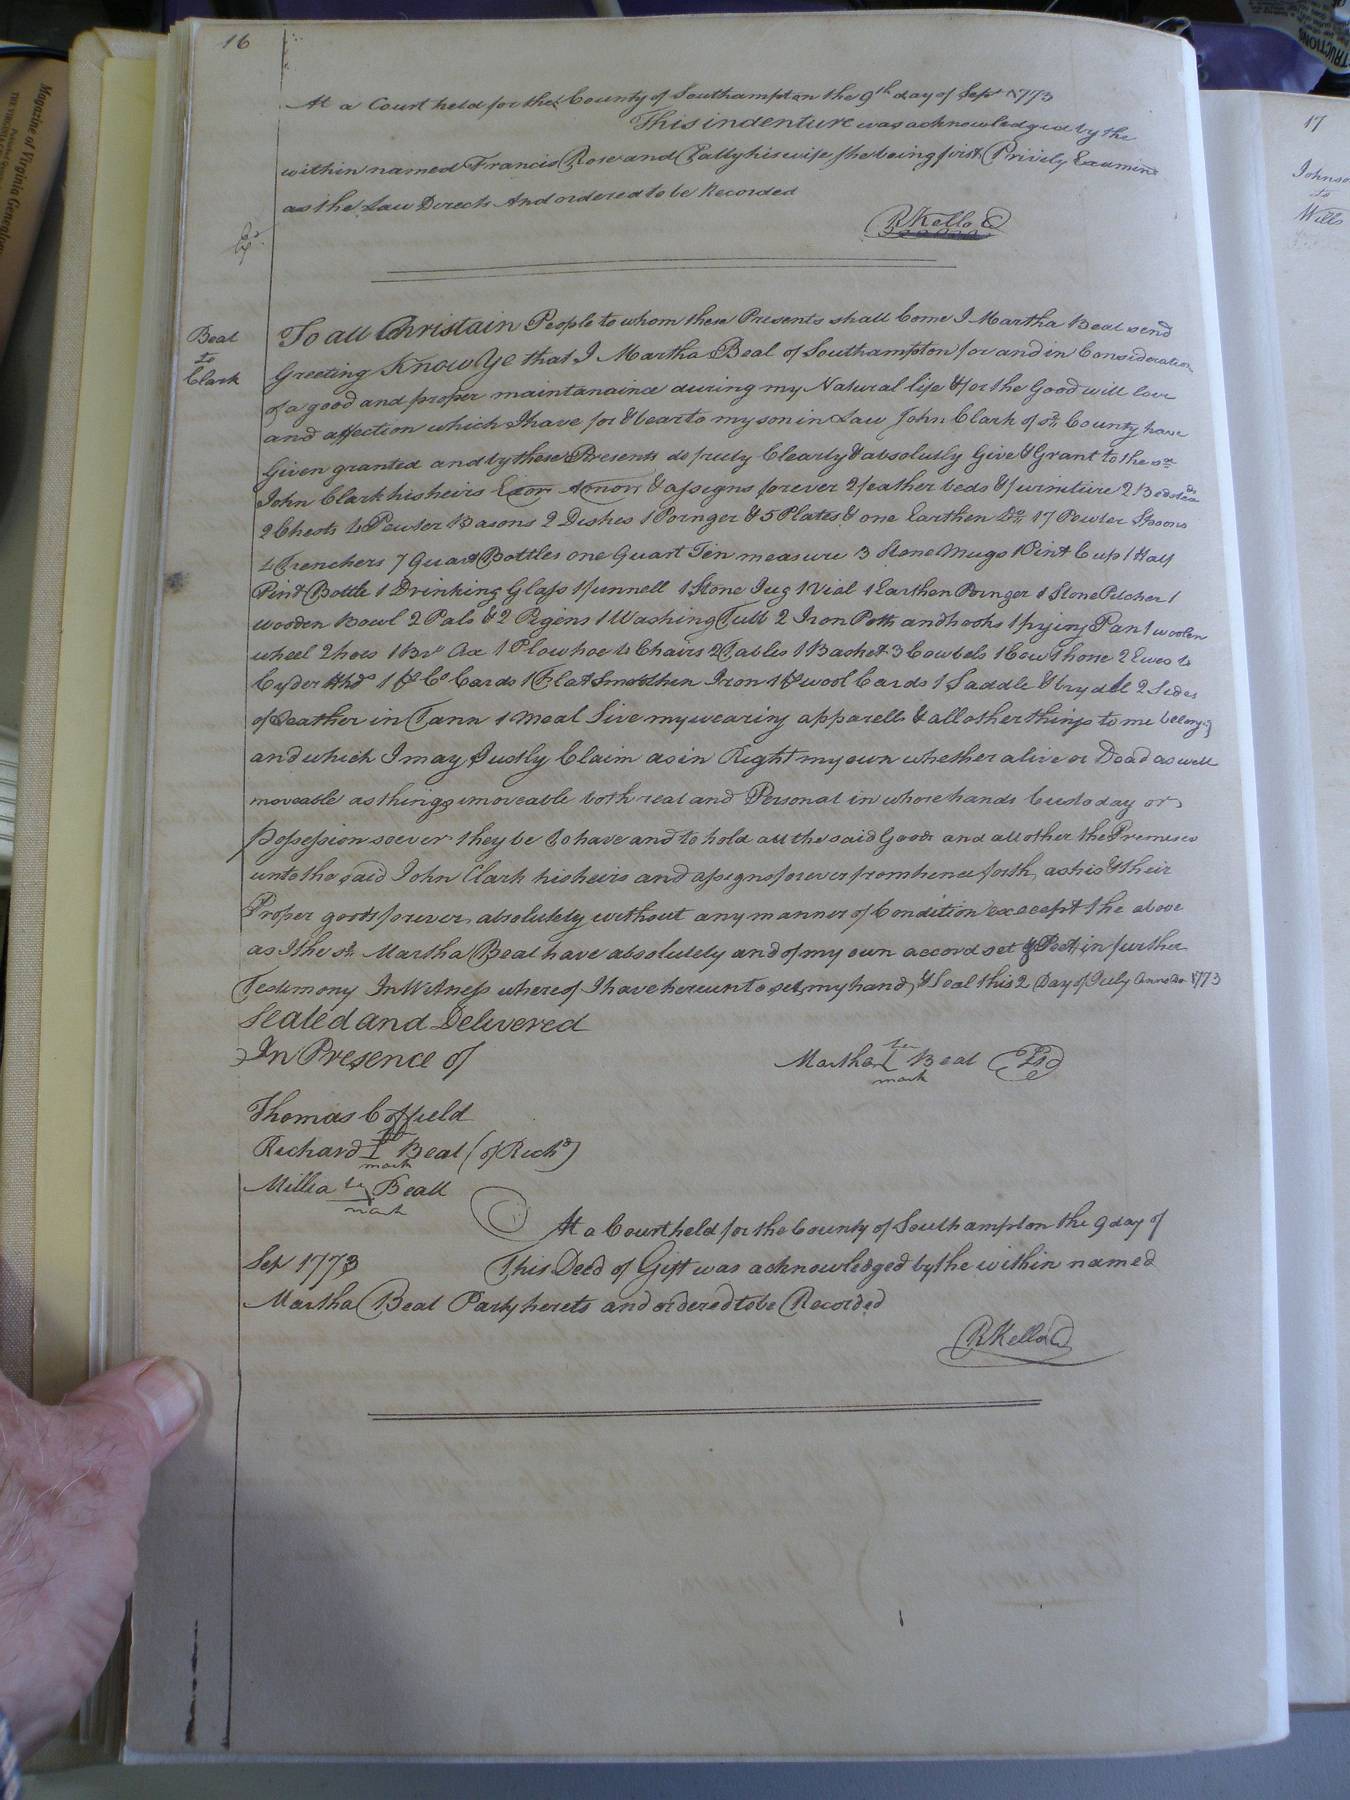 16
At a Court held for the County of Southampton the 9th day of Sept 1773
This indenture was acknowledged by the
within named Francis Rose and Patty his wife she being first Privily Examin'd
as the Law Directs And ordered to be Recorded
RKello C
Exd
Beal
to
Clark
To all Christain People to whom these Presents shall Come I Martha Beal send
Greeting Know Ye that I Martha Beal of Southampton for and in Consideration
of a good and proper maintanaince during my Natural life & for the Good will love
and affection which I have for & bear to my son in Law John Clark of sd County have
Given granted and by these Presents do freely Clearly & absolutly Give & Grant to the sd
John Clark his heirs Exors Amors & assigns forever 2 feather beds & furniture 2 Bedsteds
2 Chests 4 Pewter Basons 2 Dishes 1 Poringer & 5 Plates & one Earthen Do 17 Pewter Spoons
4 Trenchers 7 Quart Bottles one Quart Tin measure 3 Stone Mugs 1 Pint Cup 1 Half
Pint Bottle 1 Drinking Glass 1 funnell 1 Stone Jug 1 Vial 1 Earthen Poringer 1 Stone Pitcher 1
wooden Bowl 2 Pals & 2 Pigins 1 Washing Tubb 2 Iron Potts and hooks 1 frying Pan 1 woolen
wheel 2 hoes 1 Brd Axe 1 Plow hoe 4 Chairs 2 Tables 1 Basket 3 Cowbels 1 Cow 1 horse 2 Ewes 4
Cyder Hhds 1 pr Co Cards 1 Flat Smoothen Iron 1 pr wool Cards 1 Saddle & brydle 2 Sides
of Leather in Tann 1 Meal Sive my wearing apparell & all other things to me belongg
and which I may Justly Claim as in Right my own whether alive or Dead as well
moveable as things imoveable both real and Personal in whose hands Custoday or
Possession soever they be To have and to hold all the said Goods and all other the Premises
unto the said John Clark his heirs and assigns forever from hence forth, as his & their
Proper goods forever absolutely without any manner of Condition excecept the above
as I the sd Martha Beal have absolutely and of my own accord set & Pect in further
Testimony In Witness whereof I have hereunto set my hand & Seal this 2 Day of July Anno Do 1773
Sealed and Delivered
In Presence of
her
Martha Beal Ls
mark
Thomas Coffield
Richard I Beal (of Richd)
mark
Millia her Beall
mark
At a Court held for the County of Southampton the 9 day of
Sep 1773 This Deed of Gift was acknowledged by the within named
Martha Beal Party hereto and ordered to be Recorded
RKello C
17
Johnso
to
Wills
Magazine of Virginia Genealogy